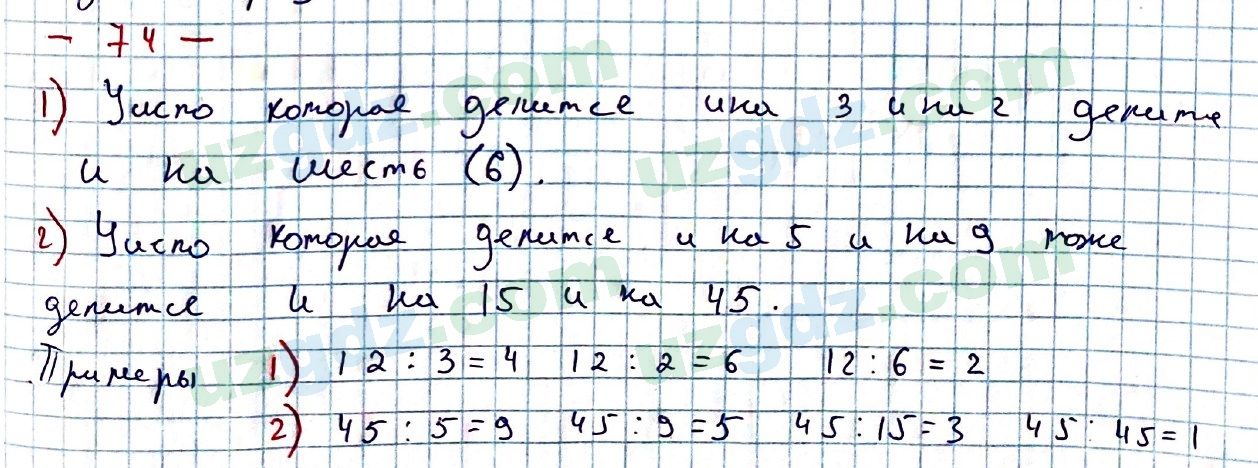 - 74 -
1) Число которая делитсе и на 3 и на 2 делите
и на шесть (6).
2) Число которая делитсе и на 5 и на 9 тоже
делитсе и на 15 и на 45.
Примеры 1) 12 : 3 = 4 12 : 2 = 6 12 : 6 = 2
2) 45 : 5 = 9 45 : 9 = 5 45 : 15 = 3 45 : 45 = 1
uzgdz.com uzgdz.com
uzgdz.com uzgdz.com